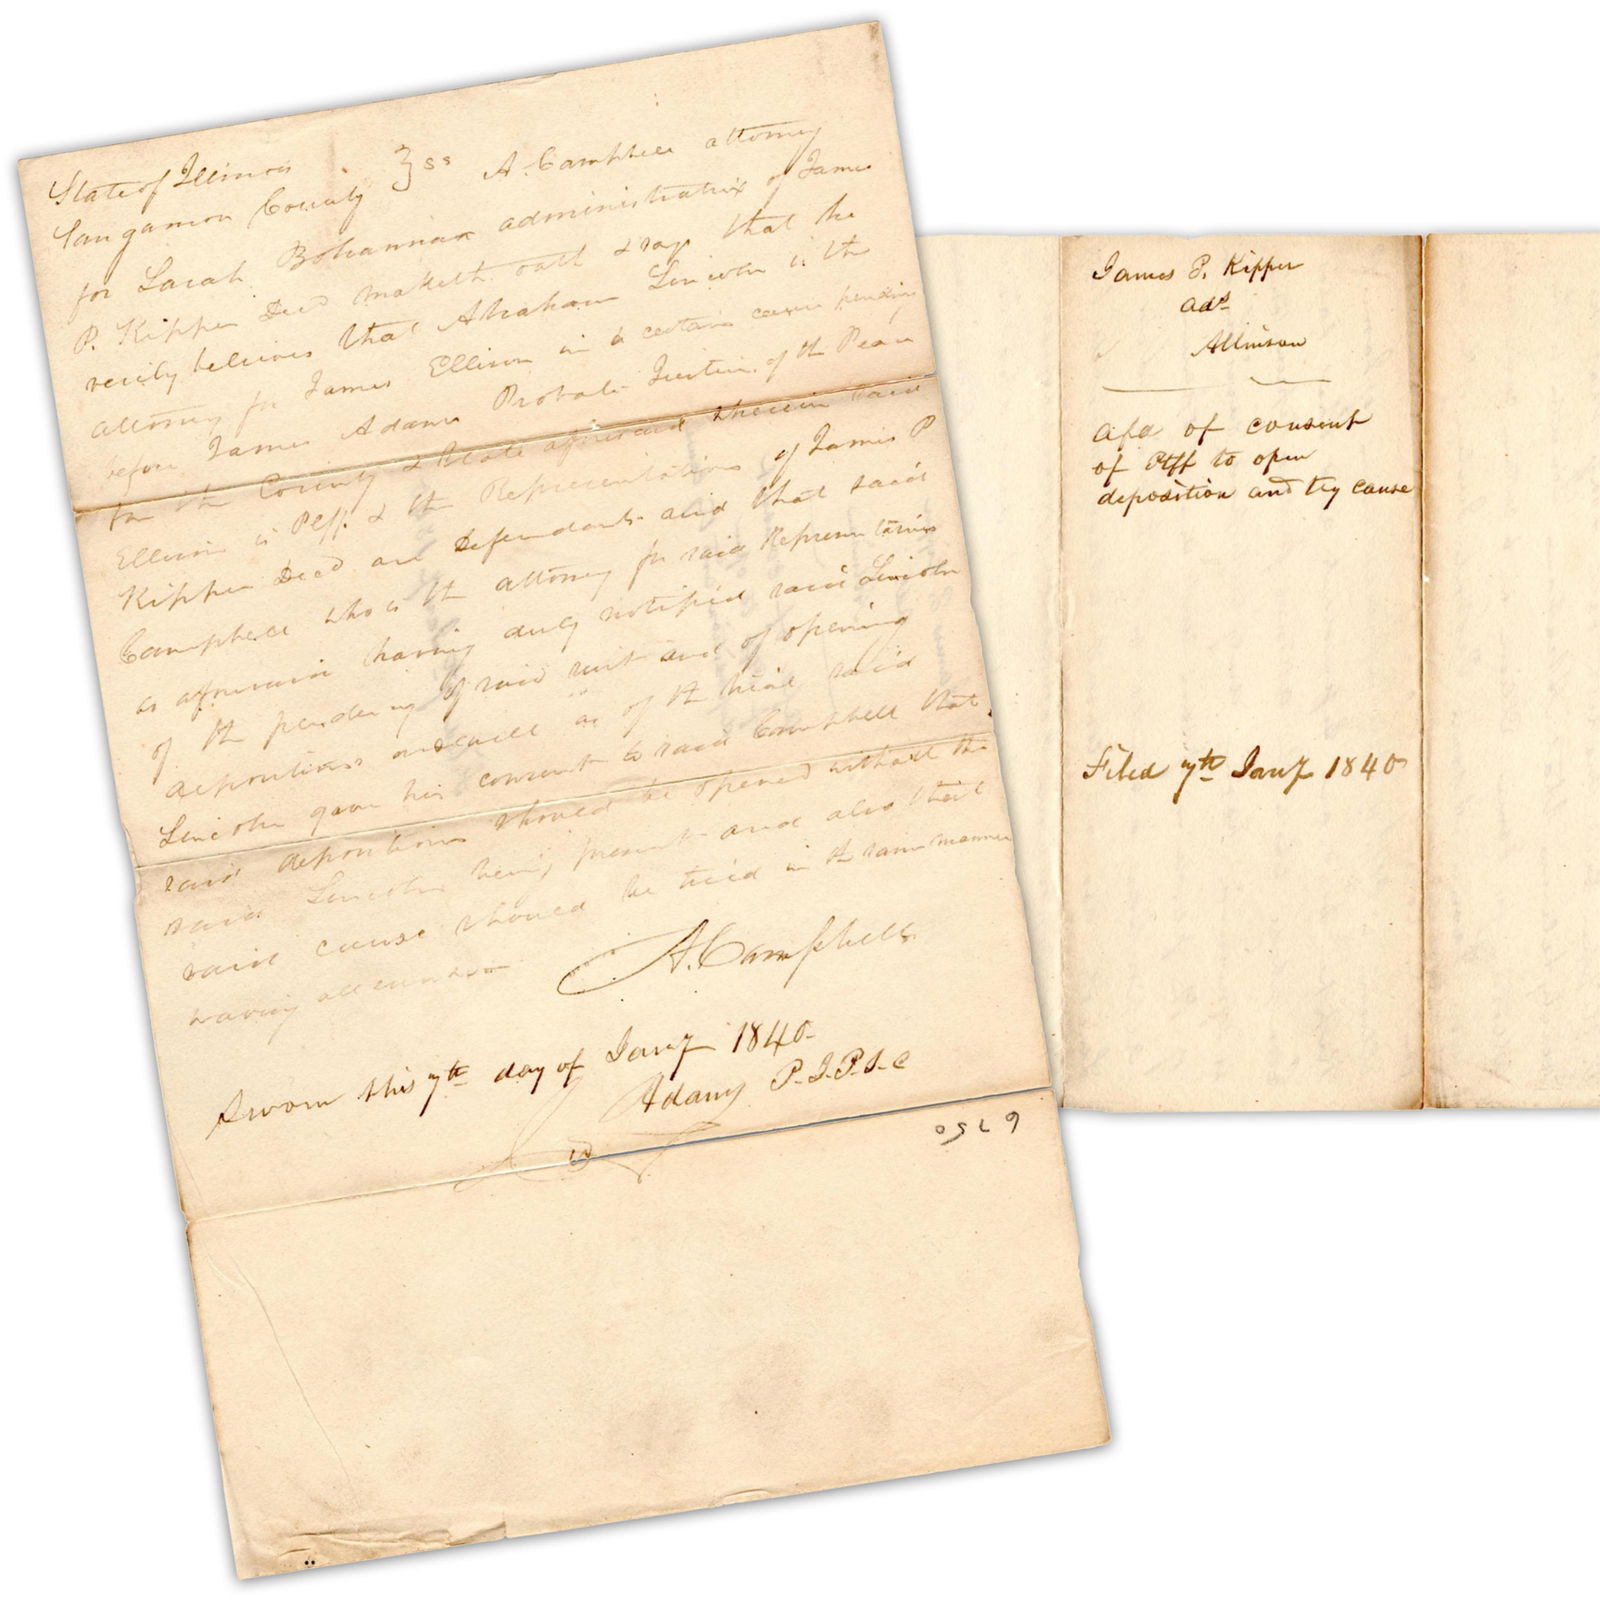 State of Illinois } ss
Sangamon County A. Campbell attorney
for Sarah Bohannan administratrix of James
P. Kipper Decd maketh oath & says that he
verily believes that Abraham Lincoln is the
attorney for James Ellison in a certain cause pending
before James Adams Probate Justice of the Peace
for the County & State aforesaid wherein said
Ellison is Plff. & the Representatives of James P
Kipper Decd are Defendants and that said
Campbell who is the attorney for said Representatives
as aforesaid having duly notified said Lincoln
of the pendency of said suit and of opening
depositions as well as of the trial said
Lincoln gave his consent to said Campbell that
said depositions should be opened without the
said Lincoln being present and also that
said cause should be tried in the same manner
waving attendance
A. Campbell
Sworn this 7th day of Jany 1840
Adams P.J.P.S.C
6750
James P. Kipper
ads
Allinson
Afd of consent
of Ptff to open
deposition and try cause
Filed 7th Jany 1840